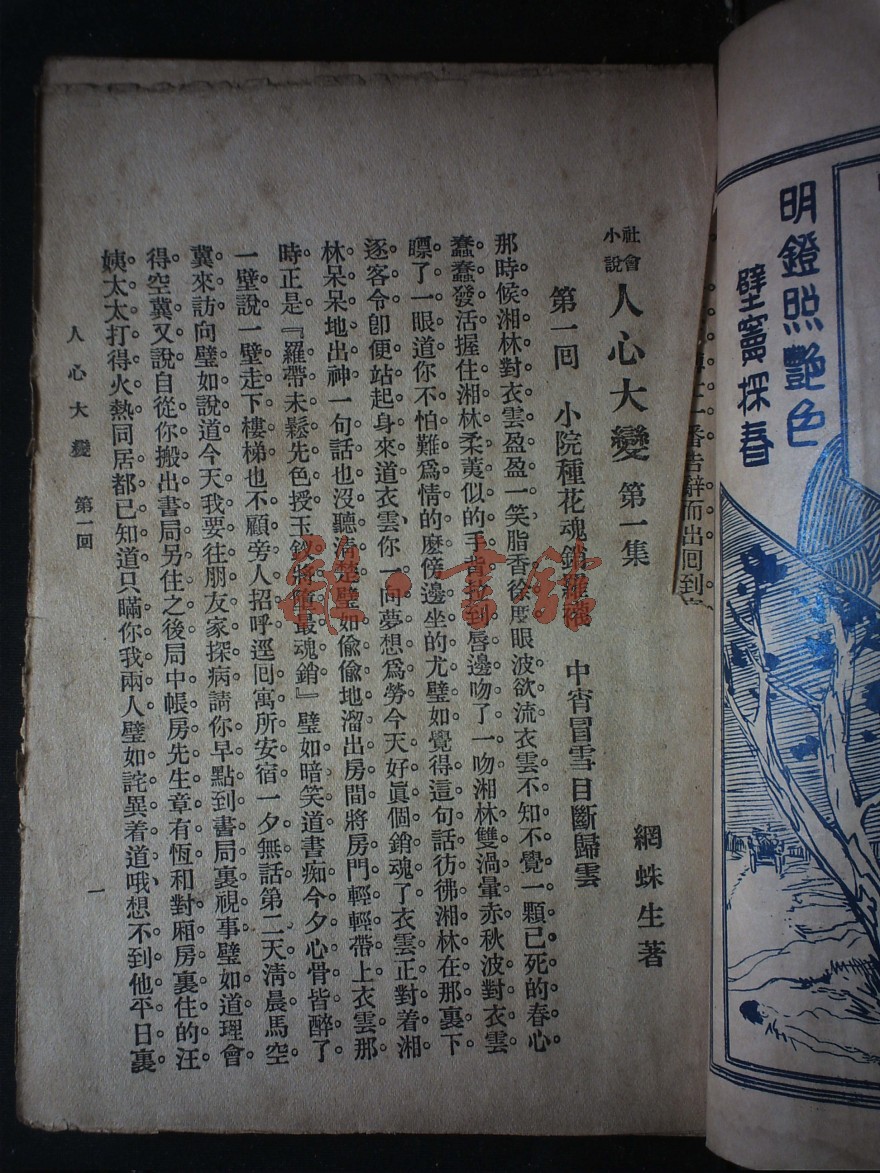 明鐙照艷色
壁竇探春
番告辭而出囘到
社會小說 人心大變 第一集
網蛛生著
第一囘 小院種花魂銷羅襪 中宵冒雪目斷歸雲
那時候湘林對衣雲盈盈一笑。脂香微度。眼波欲流。衣雲不知不覺一顆已死的春心。
蠢蠢發活。握住湘林柔荑似的手背。拉到唇邊吻了一吻。湘林雙渦暈赤。秋波對衣雲
瞟了一眼道。你不怕難爲情的麽。傍邊坐的尤璧如覺得這句話。彷彿湘林在那裏下
逐客令。卽便站起身來道。衣雲、你一向夢想爲勞。今天好眞個銷魂了。衣雲正對着湘
林呆呆地出神。一句話也沒聽清楚。璧如偷偷地溜出房間。將房門輕輕帶上。衣雲那
時正是『羅帶未鬆先色授。玉釵將墮最魂銷』璧如暗笑道。書痴今夕心骨皆醉了。
一壁說。一壁走下樓梯。也不顧旁人招呼。逕囘寓所安宿。一夕無話。第二天清晨、馬空
冀來訪。向璧如說道。今天我要往朋友家探病。請你早點到書局裏視事。璧如道。理會
得。空冀又說。自從你搬出書局另住之後。局中帳房先生章有恆。和對廂房裏住的汪
姨太太打得火熱。同居都已知道。只瞞你我兩人。璧如詫異着道。哦、想不到他平日裏
人心大變 第一囘
一